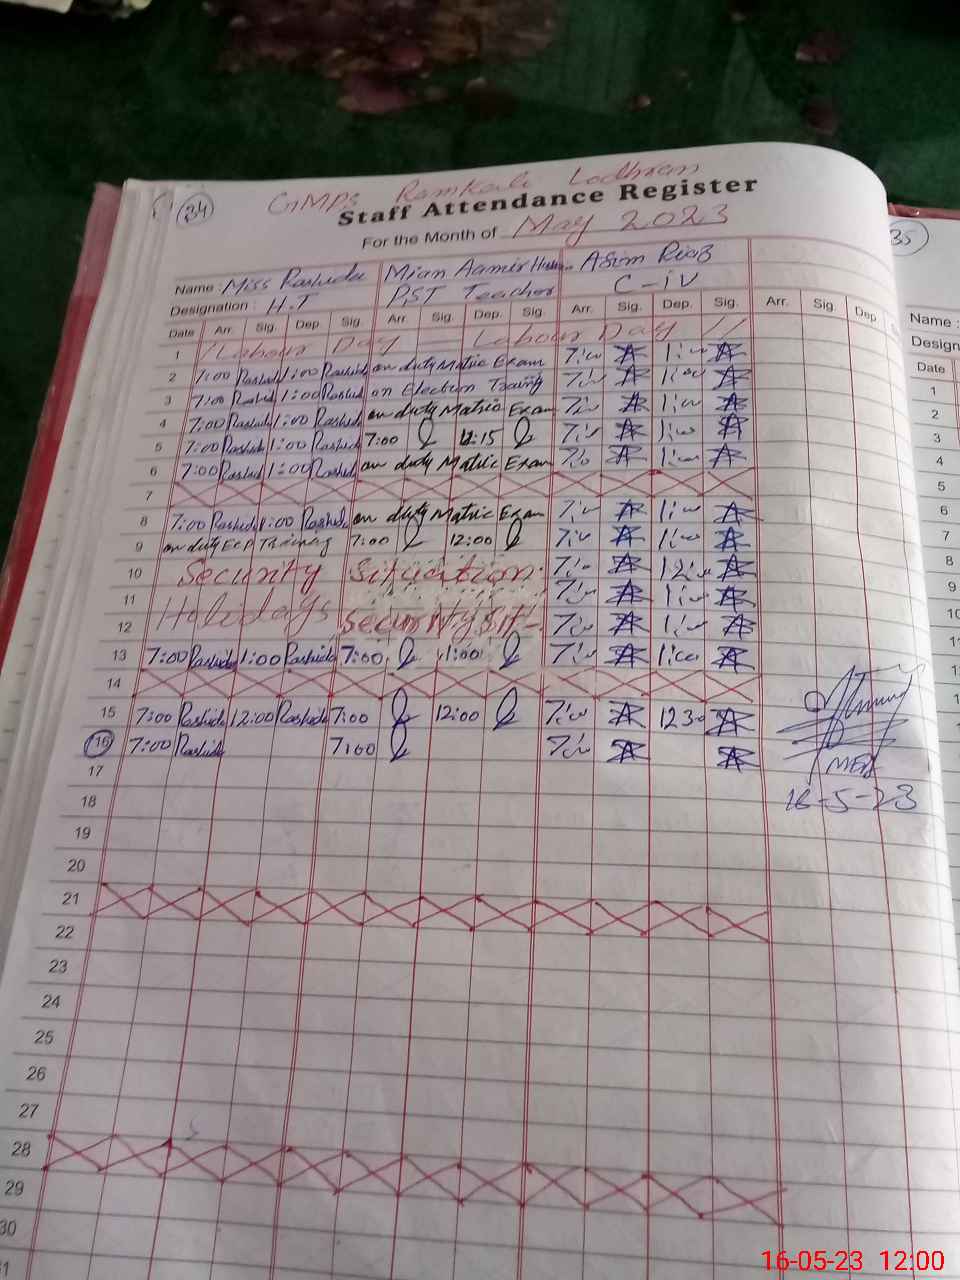 34
GMPS Ramkali Lodhran
Staff Attendance Register
35
For the Month of May 2023
Name : Miss Rashida Mian Aamir Hussn Asim Riaz
Name :
Designation : H.T PST Teacher C-iv
Design
Date Arr. Sig. Dep. Sig. Arr. Sig. Dep. Sig. Arr. Sig. Dep. Sig. Arr. Sig. Dep
Date
1 Labour Day Labour Day //
1
2 7:00 Rashida 1:00 Rashida on duty Matric Exam 7:00 1:00
2
3 7:00 Rashid 1:00 Rashida on Election Traning 7:00 1:00
3
4 7:00 Rashid 1:00 Rashida on duty Matric Exam 7:00 1:00
4
5 7:00 Rashid 1:00 Rashida 7:00 12:15 7:00 1:00
5
6 7:00 Rashid 1:00 Rashid on duty Matric Exam 7:00 1:00
7
6
8 7:00 Rashida 1:00 Rashida on duty Matric Exam 7:00 1:00
7
9 on duty Training 7:00 12:00 7:00 1:00
8
10 Security Situation 7:00 12:00
9
11 7:00 1:00
12 Holidays Security Sit- 7:00 1:00
13 7:00 Rashida 1:00 Rashida 7:00 1:00 7:00 1:00
14
15 7:00 Rashida 12:00 Rashida 7:00 12:00 7:00 1230
16 7:00 Rashida 7:00 7:00
MEA
17
16-5-23
18
19
20
21
22
23
24
25
26
27
28
29
30
16-05-23 12:00